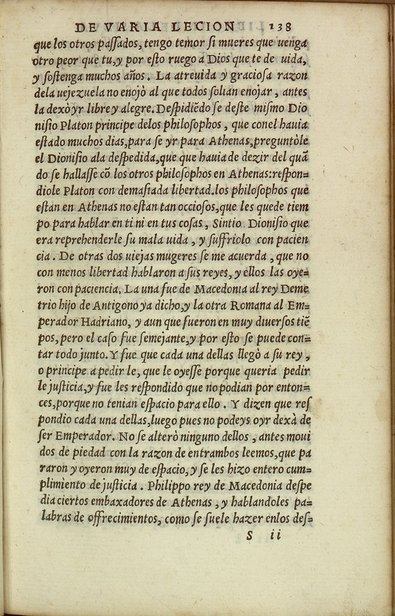 DE VARIA LECION 138
que los otros passados, tengo temor si mueres que uenga
otro peor que tu, y por esto ruego a Dios que te de uida,
y sostenga muchos años. La atreuida y graciosa razon
dela uejezuela no enojò al que todos solian enojar, antes
la dexò yr libre y alegre. Despidiẽdo se deste mismo Dio
nisio Platon principe delos philosophos, que conel hauia
estado muchos dias, para se yr para Athenas, preguntòle
el Dionisio ala despedida, que que hauia de dezir del quã
do se hallasse cõ los otros philosophos en Athenas: respon
diole Platon con demasiada libertad. los philosophos que
estan en Athenas no estan tan occiosos, que les quede tiem
po para hablar en ti ni en tus cosas, Sintio Dionisio que
era reprehenderle su mala uida, y suffriolo con pacien
cia. De otras dos uiejas mugeres se me acuerda, que no
con menos libertad hablaron a sus reyes, y ellos las oye=
ron con paciencia. La una fue de Macedonia al rey Deme
trio hijo de Antigono ya dicho, y la otra Romana al Em=
perador Hadriano, y aun que fueron en muy diuersos tiẽ
pos, pero el caso fue semejante, y por esto se puede con=
tar todo junto. Y fue que cada una dellas llegò a su rey,
o principe a pedir le, que le oyesse porque queria pedir
le justicia, y fue les respondido que no podian por enton=
ces, porque no tenian espacio para ello. Y dizen que res
pondio cada una dellas, luego pues no podeys oyr dexà de
ser Emperador. No se alterò ninguno dellos, antes moui
dos de piedad con la razon de entrambos leemos, que pa
raron y oyeron muy de espacio, y se les hizo entero cum=
plimiento de justicia. Philippo rey de Macedonia despe
dia ciertos embaxadores de Athenas, y hablandoles pa=
labras de offrecimientos, como se suele hazer enlos des=
S ii